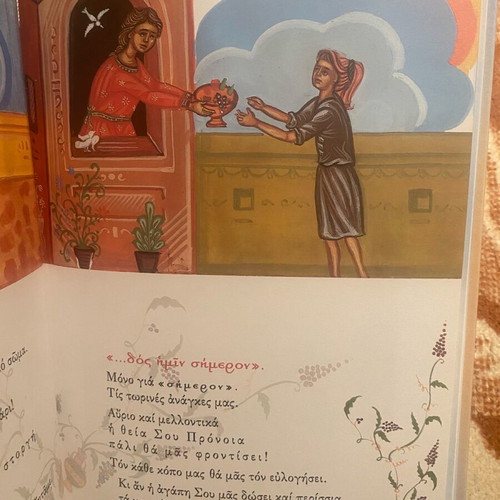 ό σῶμα.
στοργή
«...δὸς ἡμῖν σήμερον».
Μόνο γιά «σήμερον».
Τίς τωρινές ἀνάγκες μας.
Αὔριο καί μελλοντικά
ἡ θεία Σου Πρόνοια
πάλι θά μᾶς φροντίσει!
Τόν κάθε κόπο μας θά μᾶς τόν εὐλογήσει.
Κι ἄν ἡ ἀγάπη Σου μᾶς δώσει καί περίσσια